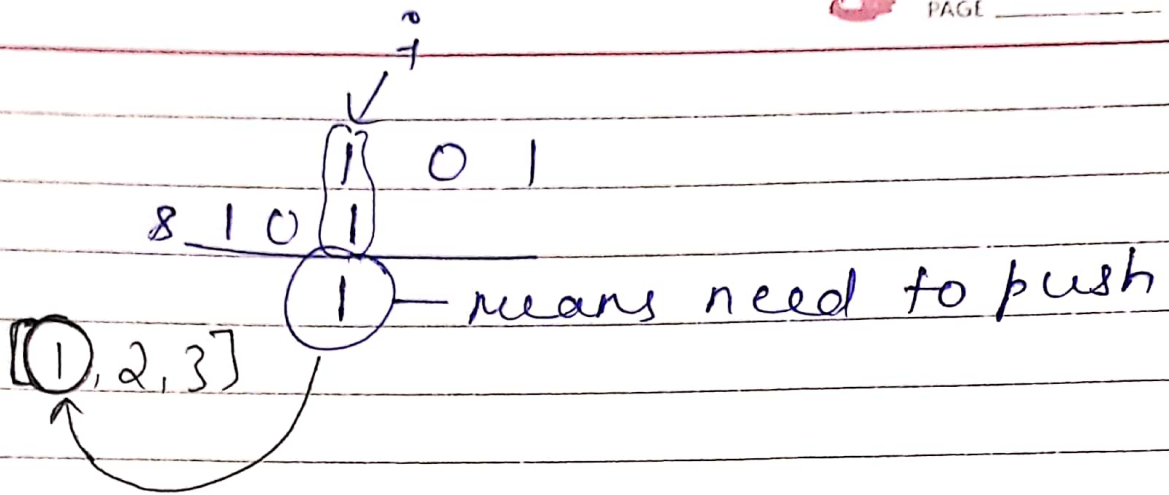 PAGE
i
1 0 1
& 1 0 1
1 — means need to push
[1, 2, 3]